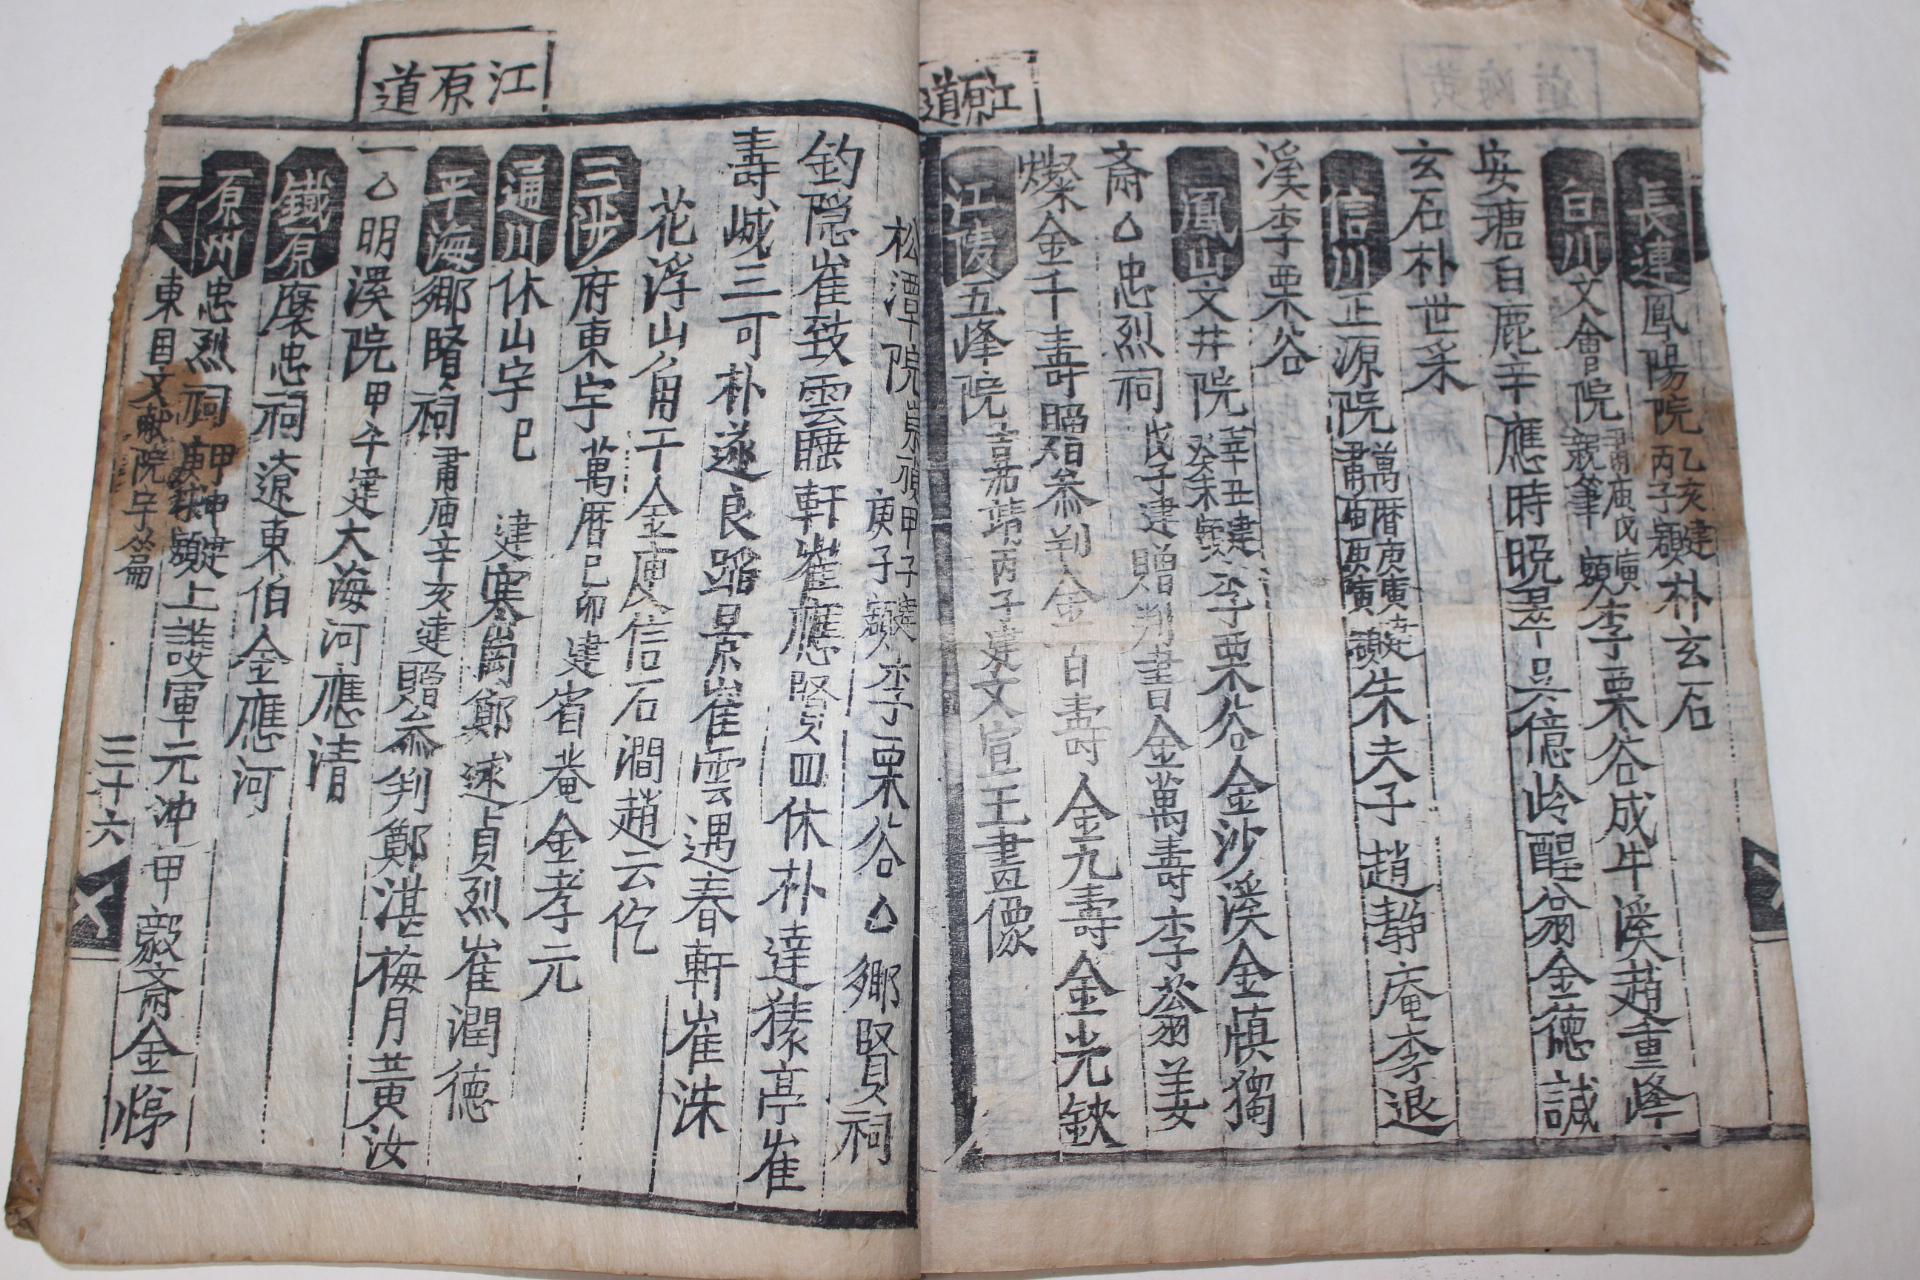 江原道
長連鳳陽院乙亥建丙子額朴玄石
白川文會院肅庙戊寅親筆額李栗谷成牛溪趙重峰
安瑭自鹿辛應時晩翠吳億岭醒翁金德諴
玄石朴世采
信川正源院萬暦庚寅建肅庙庚寅額朱夫子趙靜庵李退
溪李栗谷
鳳山文井院辛丑建癸未額李栗谷金沙溪金愼獨
斋△忠烈祠戊子建贈判書金萬壽李蓊姜
燦金千壽贈叅判金百壽金九壽金光鋏
江陵五峰院嘉靖丙子建文宣王畫像
江原道
松潭院崇禎甲子建庚子額李栗谷△鄕賢祠
釣隐崔致雲睡軒崔應賢四休朴達猿亭崔
壽峸三可朴遂良蹈景崔雲遇春軒崔洙
花浮山角干金庾信石澗趙云仡
三陟府東宇萬暦己卯建省菴金孝元
通川休山宇巳建寒岡鄭逑貞烈崔潤德
平海鄕賢祠肅庙辛亥建贈叅判鄭湛梅月黃汝
一△明溪院甲午建大海河應清
鐵原褒忠祠遼東伯金應河
原州忠烈祠甲申建庚戌額上護軍元冲甲毅斋金悌
東国文獻院宇篇
三十六